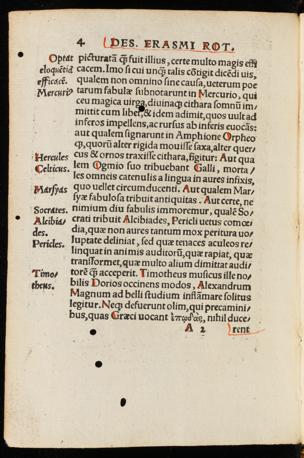 4 DES. ERASMI ROT.
Optat
eloquẽtiã
efficacẽ.
Mercurio
Hercules
Celticus.
Marsyas
Socrates.
Alcibia/
des.
Pericles.
Timo/
theus.
picturatã q̃ fuit illius, certe multo magis effi
cacem. Imo si cui unq̃ talis cõtigit dicẽdi uis,
qualem non omnino sine causa, ueterum poe
tarum fabulæ subnotarunt in Mercurio, qui
ceu magica uirga, diuinaq; cithara somnũ im/
mittit cum libet, & idem adimit, quos uult ad
inferos impellens, ac rursus ab inferis euocãs:
aut qualem signarunt in Amphione Orpheo
q;, quorũ alter rigida mouisse saxa, alter quer/
cus & ornos traxisse cithara, figitur: Aut qua
lem Ogmio suo tribuebant Galli, morta/
les omneis catenulis a lingua in aures infixis,
quo uellet circumducenti. Aut qualem Mar/
syæ fabulosa tribuit antiquitas. Aut certe, ne
nimium diu fabulis immoremur, qualẽ So/
crati tribuit Alcibiades, Pericli uetus comœ/
dia, quæ non aures tantum mox peritura uo/
luptate deliniat, sed quæ tenaces aculeos re/
linquat in animis auditorũ, quæ rapiat, quæ
transformet, quæ multo alium dimittat audi/
torẽ q̃ acceperit. Timotheus musicus ille no/
bilis Dorios occinens modos, Alexandrum
Magnum ad belli studium inflãmare solitus
legitur. Neq; defuerunt olim, qui precamini/
bus, quas Græci uocant ἐπῳδὰς, nihil duce/
A 2 rent